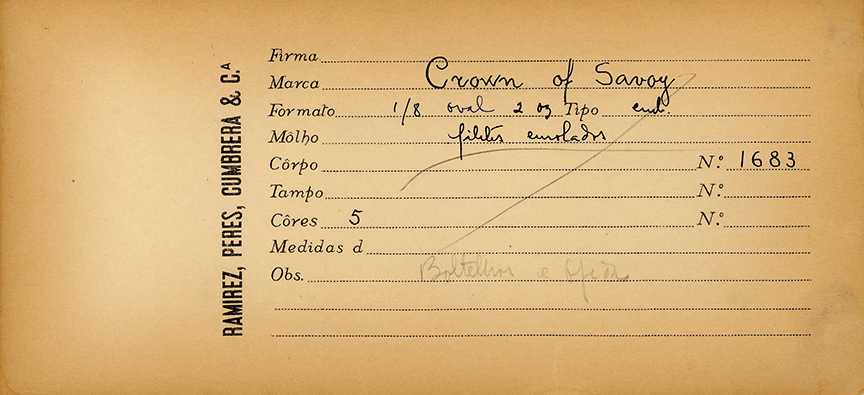 RAMIREZ, PERES, CUMBRERA & C.ᴬ
Firma
Marca Crown of Savoy
Formato 1/8 oval 2 oz Tipo end.
Môlho filetes enrolados
Côrpo N.º 1683
Tampo N.º
Côres 5 N.º
Medidas d
Obs. e